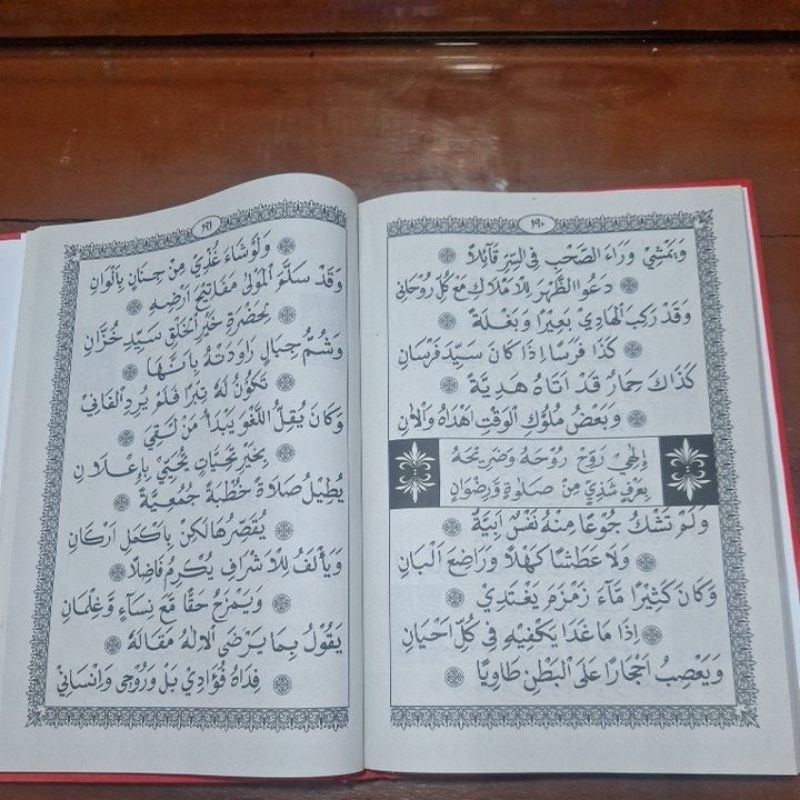 ١٩٠
وَيَمْشِيْ وَرَاءَ الصَّحْبِ فِى السِّرِّ قَآئِلًا
دَعُوا الظَّهْرَ لِلْاَمْلَاكِ مَعْ كُلِّ رُوْحَانِى
وَقَدْ رَكِبَ الْهَادِيْ بَعِيْرًا وَبَغْلَةً
كَذَا فَرَسًا اِذَا كَانَ سَيِّدَ فُرْسَانِ
كَذَاكَ حِمَارٌ قَدْ اَتَاهُ هَدِيَّةً
وَبَعْضُ مُلُوْكِ الْوَقْتِ اَهْدَاهُ وَالْاٰنِ
اِلٰهِيْ رَوِّحْ رُوْحَهُ وَضَرِيْحَهُ
بِعَرْفٍ شَذِيٍّ مِنْ صَلَوةٍ وَرِضْوَانٍ
وَلَمْ تَشْكُ جُوْعًا مِنْهُ نَفْسٌ اَبِيَّةٌ
وَلَا عَطَشًا كَهْلًا وَرَاضِعَ الْبَانِ
وَكَانَ كَثِيْرًا مَآءَ زَمْزَمَ يَغْتَدِيْ
اِذَا مَا غَدَا يَكْفِيْهِ فِى كُلِّ اَحْيَانِ
وَيَعْصِبُ اَحْجَارًا عَلَى الْبَطْنِ طَاوِيًا
١٩١
وَلَوْ شَاءَ غُذِّيْ مِنْ جِنَانٍ بِاَلْوَانِ
وَقَدْ سَلَّمَ الْمَوْلٰى مَفَاتِيْحَ اَرْضِهِ
لِحَضْرَةِ خَيْرِ الْخَلْقِ سَيِّدِ خُزَّانِ
وَشُمُّ جِبَالٍ رَاوَدَتْهُ بِاَنَّهَا
تَكُوْنُ لَهُ تِبْرًا فَلَمْ يُرِدِ الْفَانِيْ
وَكَانَ يُقِلُّ اللَّغْوَ يَبْدَأُ مَنْ لَقِيَ
بِخَيْرِ تَحِيَّاتٍ يُحَيِّيْ بِاِعْلَانِ
يُطِيْلُ صَلَاةً خُطْبَةً جُمُعِيَّةً
يُقَصِّرُهَا لٰكِنْ بِاَكْمَلِ اَرْكَانِ
وَيَأْلَفُ لِلْاَشْرَافِ يُكْرِمُ فَاضِلًا
وَيَمْزَحُ حَقًّا مَعْ نِسَاءٍ وَغِلْمَانِ
يَقُوْلُ بِمَا يَرْضَى الْاِلٰهُ مَقَالَهُ
فِدَاهُ فُؤَادِيْ بَلْ وَرُوْحِى وَاِنْسَانِيْ